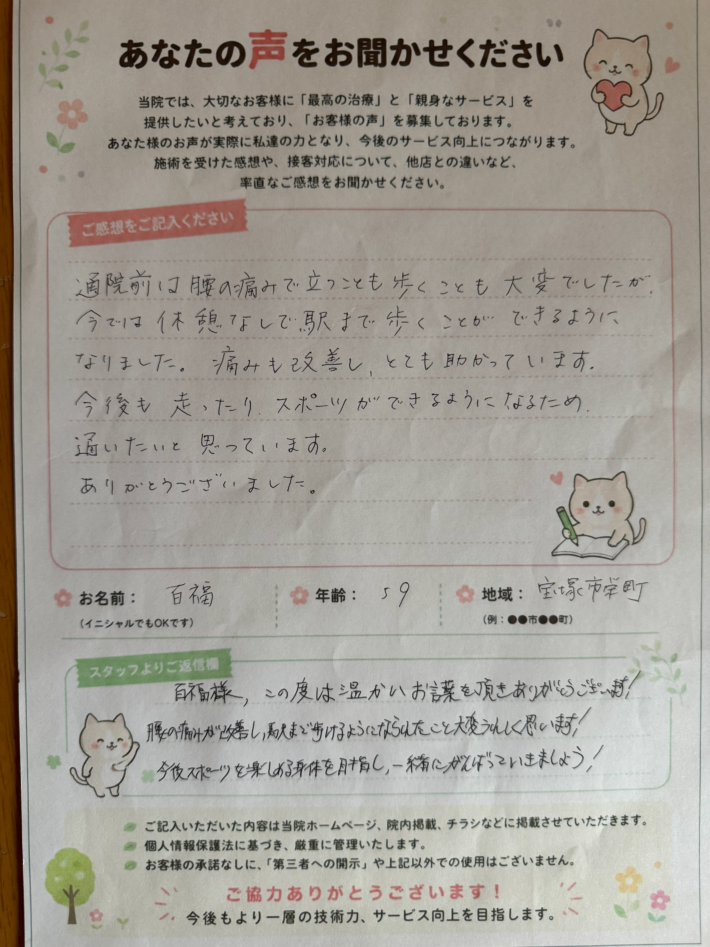 あなたの声をお聞かせください
当院では、大切なお客様に「最高の治療」と「親身なサービス」を
提供したいと考えており、「お客様の声」を募集しております。
あなた様のお声が実際に私達の力となり、今後のサービス向上につながります。
施術を受けた感想や、接客対応について、他店との違いなど、
率直なご感想をお聞かせください。
ご感想をご記入ください
通院前は腰の痛みで立つことも歩くことも大変でしたが、
今では休憩なしで駅まで歩くことができるように
なりました。痛みも改善し、とても助かっています。
今後も走ったり、スポーツができるようになるため、
通いたいと思っています。
ありがとうございました。
お名前： 百福 年齢： 59 地域： 宝塚市栄町
（イニシャルでもOKです） （例：●●市●●町）
スタッフよりご返信欄
百福様、この度は温かいお言葉を頂きありがとうございます！
腰の痛みが改善し、駅まで歩けるようになられたこと大変うれしく思います！
今後スポーツを楽しめる身体を目指し、一緒にがんばっていきましょう！
ご記入いただいた内容は当院ホームページ、院内掲載、チラシなどに掲載させていただきます。
個人情報保護法に基づき、厳重に管理いたします。
お客様の承諾なしに、「第三者への開示」や上記以外での使用はございません。
ご協力ありがとうございます！
今後もより一層の技術力、サービス向上を目指します。